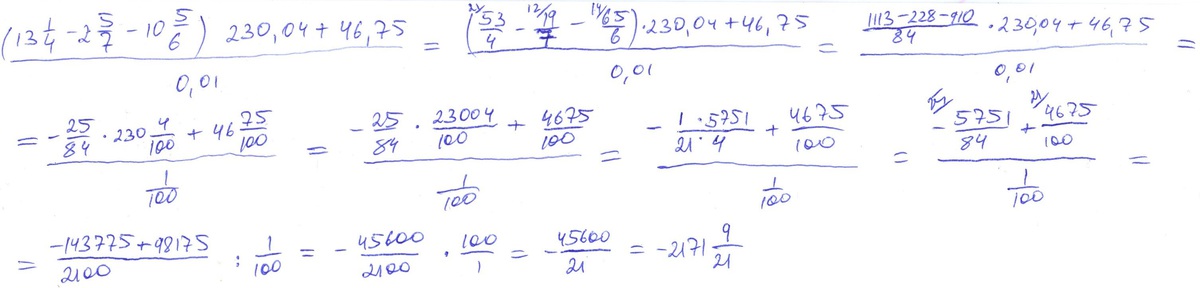 \frac{(13\frac{1}{4} - 2\frac{5}{7} - 10\frac{5}{6}) 230,04 + 46,75}{0,01} = \frac{(\overset{21/}{\frac{53}{4}} - \overset{12/}{\frac{19}{7}} - \overset{14/}{\frac{65}{6}}) \cdot 230,04 + 46,75}{0,01} = \frac{\frac{1113 - 228 - 910}{84} \cdot 230,04 + 46,75}{0,01} =
= \frac{-\frac{25}{84} \cdot 230\frac{4}{100} + 46\frac{75}{100}}{\frac{1}{100}} = \frac{-\frac{25}{84} \cdot \frac{23004}{100} + \frac{4675}{100}}{\frac{1}{100}} = \frac{-\frac{1 \cdot 5751}{21 \cdot 4} + \frac{4675}{100}}{\frac{1}{100}} = \frac{-\frac{5751}{84} + \overset{21/}{\frac{4675}{100}}}{\frac{1}{100}} =
= \frac{-143775 + 98175}{2100} : \frac{1}{100} = -\frac{45600}{2100} \cdot \frac{100}{1} = -\frac{45600}{21} = -2171\frac{9}{21}